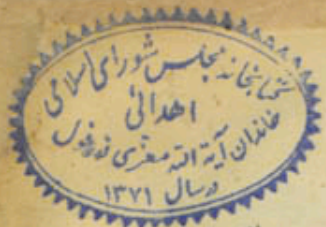 کتابخانه مجلس شورای اسلامی
اهدائی
خاندان آیة الله معزی دزفول
در سال ۱۳۷۱